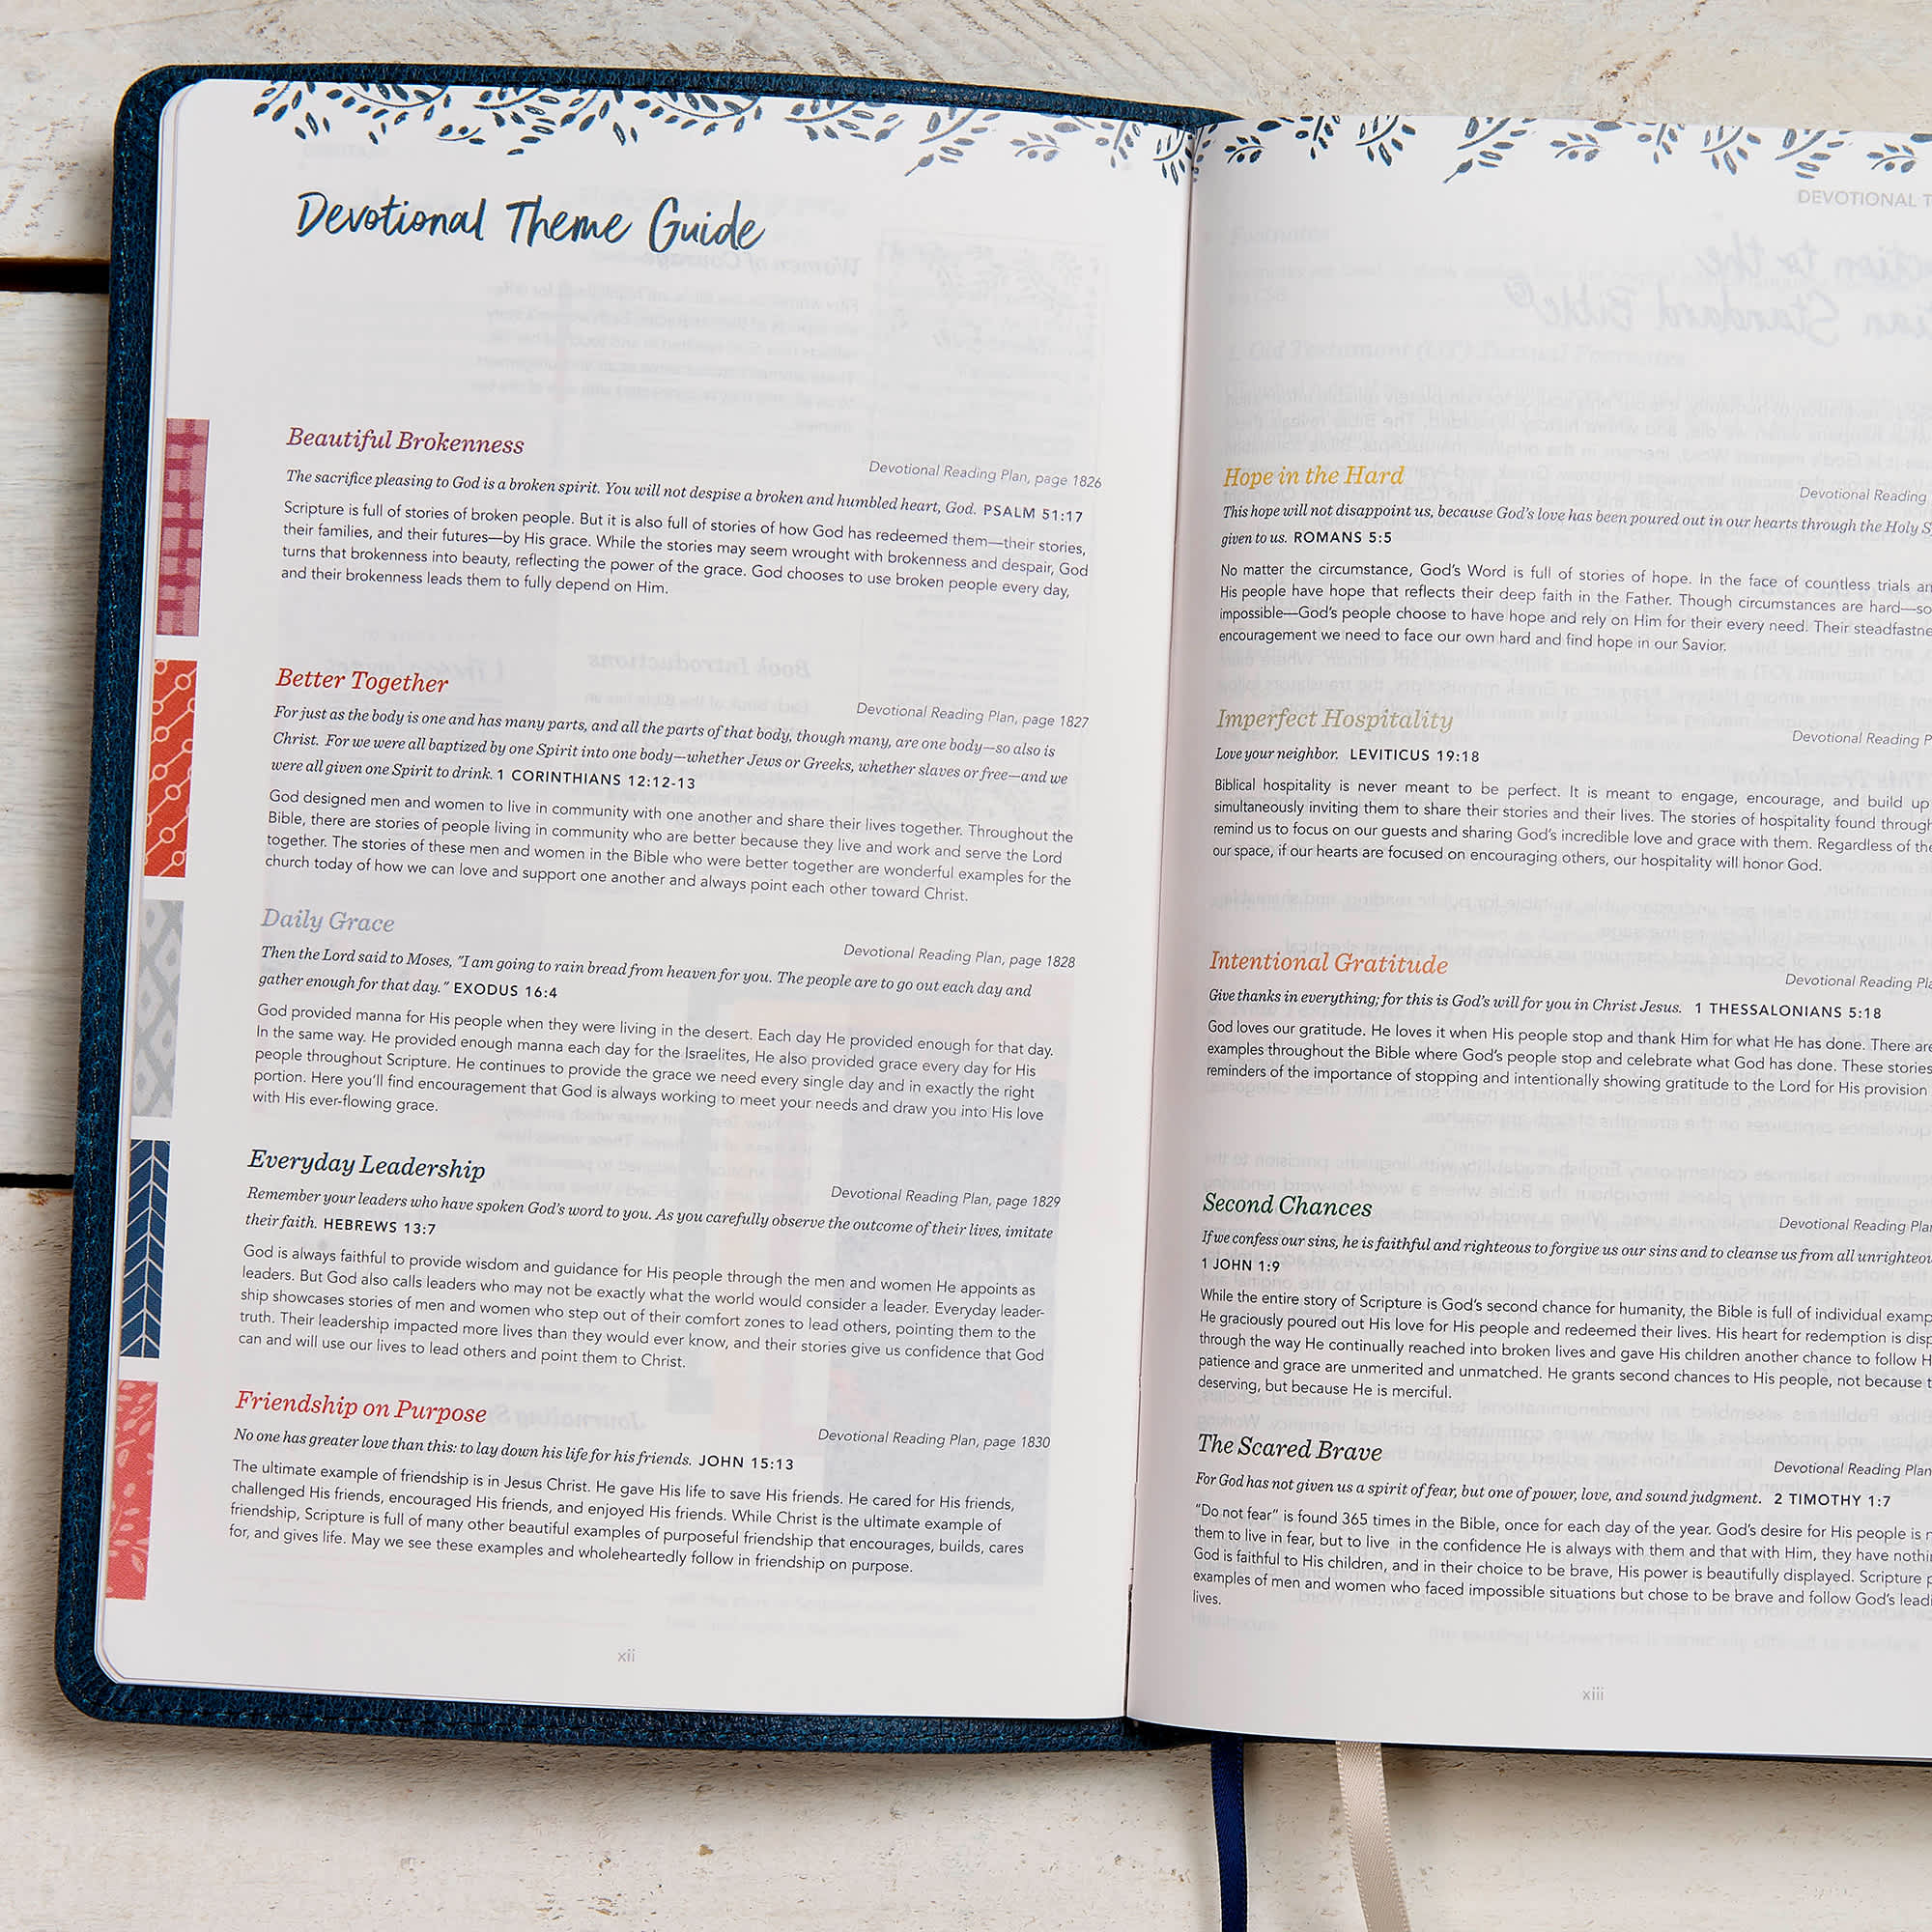 Devotional Theme Guide
Beautiful Brokenness
Devotional Reading Plan, page 1826
The sacrifice pleasing to God is a broken spirit. You will not despise a broken and humbled heart, God. PSALM 51:17
Scripture is full of stories of broken people. But it is also full of stories of how God has redeemed them—their stories,
their families, and their futures—by His grace. While the stories may seem wrought with brokenness and despair, God
turns that brokenness into beauty, reflecting the power of the grace. God chooses to use broken people every day,
and their brokenness leads them to fully depend on Him.
Better Together
Devotional Reading Plan, page 1827
For just as the body is one and has many parts, and all the parts of that body, though many, are one body—so also is
Christ. For we were all baptized by one Spirit into one body—whether Jews or Greeks, whether slaves or free—and we
were all given one Spirit to drink. 1 CORINTHIANS 12:12-13
God designed men and women to live in community with one another and share their lives together. Throughout the
Bible, there are stories of people living in community who are better because they live and work and serve the Lord
together. The stories of these men and women in the Bible who were better together are wonderful examples for the
church today of how we can love and support one another and always point each other toward Christ.
Daily Grace
Devotional Reading Plan, page 1828
Then the Lord said to Moses, "I am going to rain bread from heaven for you. The people are to go out each day and
gather enough for that day." EXODUS 16:4
God provided manna for His people when they were living in the desert. Each day He provided enough for that day.
In the same way. He provided enough manna each day for the Israelites, He also provided grace every day for His
people throughout Scripture. He continues to provide the grace we need every single day and in exactly the right
portion. Here you'll find encouragement that God is always working to meet your needs and draw you into His love
with His ever-flowing grace.
Everyday Leadership
Devotional Reading Plan, page 1829
Remember your leaders who have spoken God's word to you. As you carefully observe the outcome of their lives, imitate
their faith. HEBREWS 13:7
God is always faithful to provide wisdom and guidance for His people through the men and women He appoints as
leaders. But God also calls leaders who may not be exactly what the world would consider a leader. Everyday leader-
ship showcases stories of men and women who step out of their comfort zones to lead others, pointing them to the
truth. Their leadership impacted more lives than they would ever know, and their stories give us confidence that God
can and will use our lives to lead others and point them to Christ.
Friendship on Purpose
Devotional Reading Plan, page 1830
No one has greater love than this: to lay down his life for his friends. JOHN 15:13
The ultimate example of friendship is in Jesus Christ. He gave His life to save His friends. He cared for His friends,
challenged His friends, encouraged His friends, and enjoyed His friends. While Christ is the ultimate example of
friendship, Scripture is full of many other beautiful examples of purposeful friendship that encourages, builds, cares
for, and gives life. May we see these examples and wholeheartedly follow in friendship on purpose.
xii
DEVOTIONAL T
Hope in the Hard
Devotional Reading
This hope will not disappoint us, because God's love has been poured out in our hearts through the Holy S
given to us. ROMANS 5:5
No matter the circumstance, God's Word is full of stories of hope. In the face of countless trials an
His people have hope that reflects their deep faith in the Father. Though circumstances are hard—so
impossible—God's people choose to have hope and rely on Him for their every need. Their steadfastne
encouragement we need to face our own hard and find hope in our Savior.
Imperfect Hospitality
Devotional Reading P
Love your neighbor. LEVITICUS 19:18
Biblical hospitality is never meant to be perfect. It is meant to engage, encourage, and build up
simultaneously inviting them to share their stories and their lives. The stories of hospitality found through
remind us to focus on our guests and sharing God's incredible love and grace with them. Regardless of the
our space, if our hearts are focused on encouraging others, our hospitality will honor God.
Intentional Gratitude
Devotional Reading Pla
Give thanks in everything; for this is God's will for you in Christ Jesus. 1 THESSALONIANS 5:18
God loves our gratitude. He loves it when His people stop and thank Him for what He has done. There are
examples throughout the Bible where God's people stop and celebrate what God has done. These stories
reminders of the importance of stopping and intentionally showing gratitude to the Lord for His provision
Second Chances
Devotional Reading Plan
If we confess our sins, he is faithful and righteous to forgive us our sins and to cleanse us from all unrighteou
1 JOHN 1:9
While the entire story of Scripture is God's second chance for humanity, the Bible is full of individual examp
He graciously poured out His love for His people and redeemed their lives. His heart for redemption is disp
through the way He continually reached into broken lives and gave His children another chance to follow H
patience and grace are unmerited and unmatched. He grants second chances to His people, not because t
deserving, but because He is merciful.
The Scared Brave
Devotional Reading Plan
For God has not given us a spirit of fear, but one of power, love, and sound judgment. 2 TIMOTHY 1:7
"Do not fear" is found 365 times in the Bible, once for each day of the year. God's desire for His people is n
them to live in fear, but to live in the confidence He is always with them and that with Him, they have nothi
God is faithful to His children, and in their choice to be brave, His power is beautifully displayed. Scripture p
examples of men and women who faced impossible situations but chose to be brave and follow God's lead
lives.
xiii